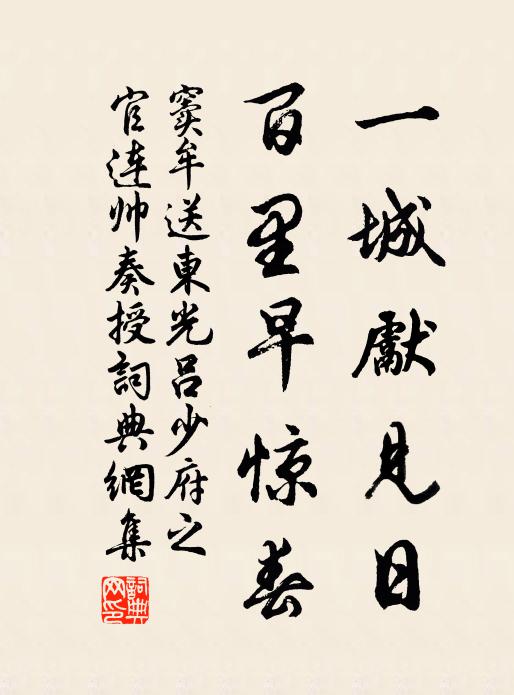 一城獻見日
百里早惊春
窦牟送東光吕少府之
官连帅奏授詞典網集
詞典网印